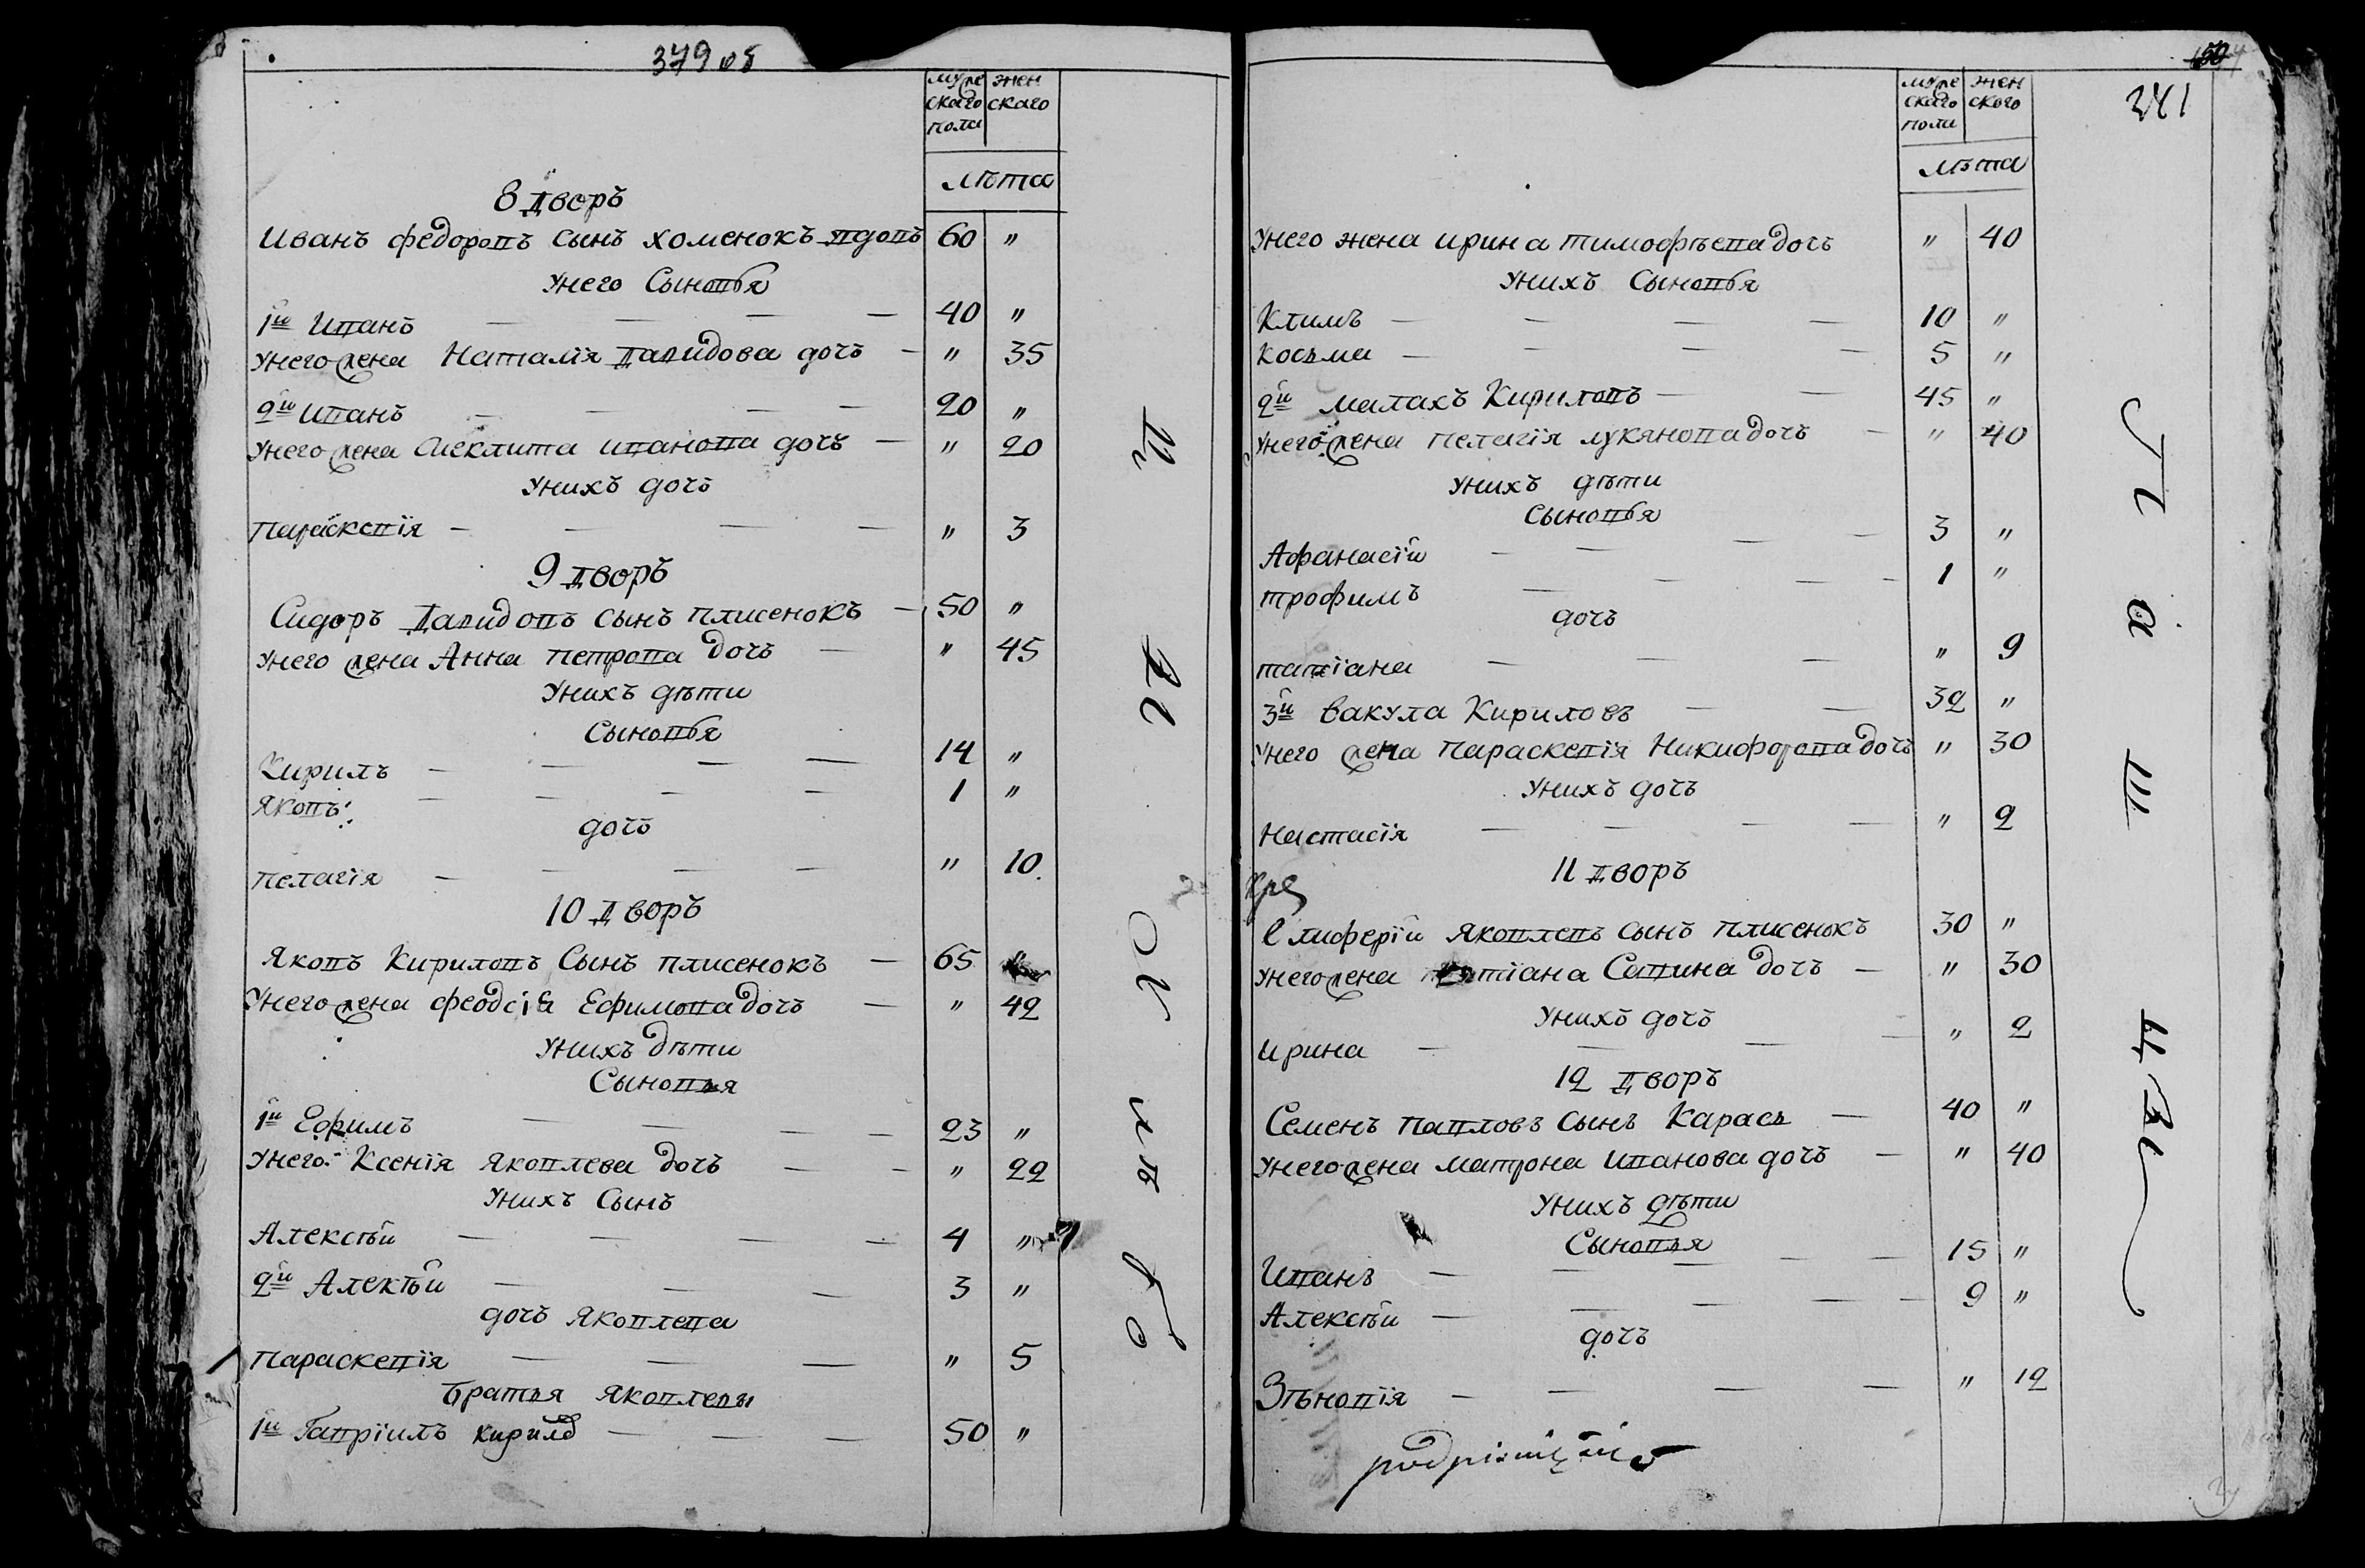 379 об
мужескаго пола
женскаго
лѣта
8 дворъ
Иванъ федоровъ сынъ хоменокъ вдовъ 60 "
Унего Сыновья
1й Иванъ 40 "
Унего жена Наталія давидова дочь " 35
2й Иванъ 20 "
Унего жена иванова дочь " 20
Унихъ дочь
параскевія " 3
9 дворъ
Сидоръ давидовъ сынъ плисенокъ 50 "
Унего жена Анна петрова дочь " 45
Унихъ дѣти
Сыновья
Кирилъ 14 "
Яковъ 1 "
дочь
пелагія " 10
10 дворъ
Яковъ Кириловъ Сынъ плисенокъ 65
Унего жена феодсія Ефимова дочь " 42
Унихъ дѣти
Сыновья
1й Ефимъ 23 "
Унего Ксенія Яковлева дочь " 22
Унихъ Сынъ
Алексѣй 4 "
2й Алекѣй 3 "
дочь Яковлева
параскевія " 5
братья Яковлевы
1й Гавріилъ Кирилв 50 "
381
мужескаго поли
женского
лѣта
Унего жена ирина тимофѣева дочь " 40
Унихъ Сыновья
Климъ 10 "
косьма 5 "
2й малахъ Кириловъ 45 "
Унего жена пелагія лукянова дочь " 40
Унихъ дѣти
Сыновья
Афанасій 3 "
трофимъ 1 "
дочь
татіана " 9
3й вакула Кириловъ 32 "
Унего жена параскевія Никифорова дочь " 30
Унихъ дочь
Настасія " 2
11 дворъ
Елиферій Яковлевъ сынъ плисенокъ 30 "
Унего жена татіана Савина дочь " 30
Унихъ дочь
ирина " 2
12 дворъ
Семенъ павловъ сынъ Карась 40 "
Унего жена матрона иванова дочь " 40
Унихъ дѣти
Сыновья
Иванъ 15 "
Алексѣй 9 "
дочь
Зѣновія " 12